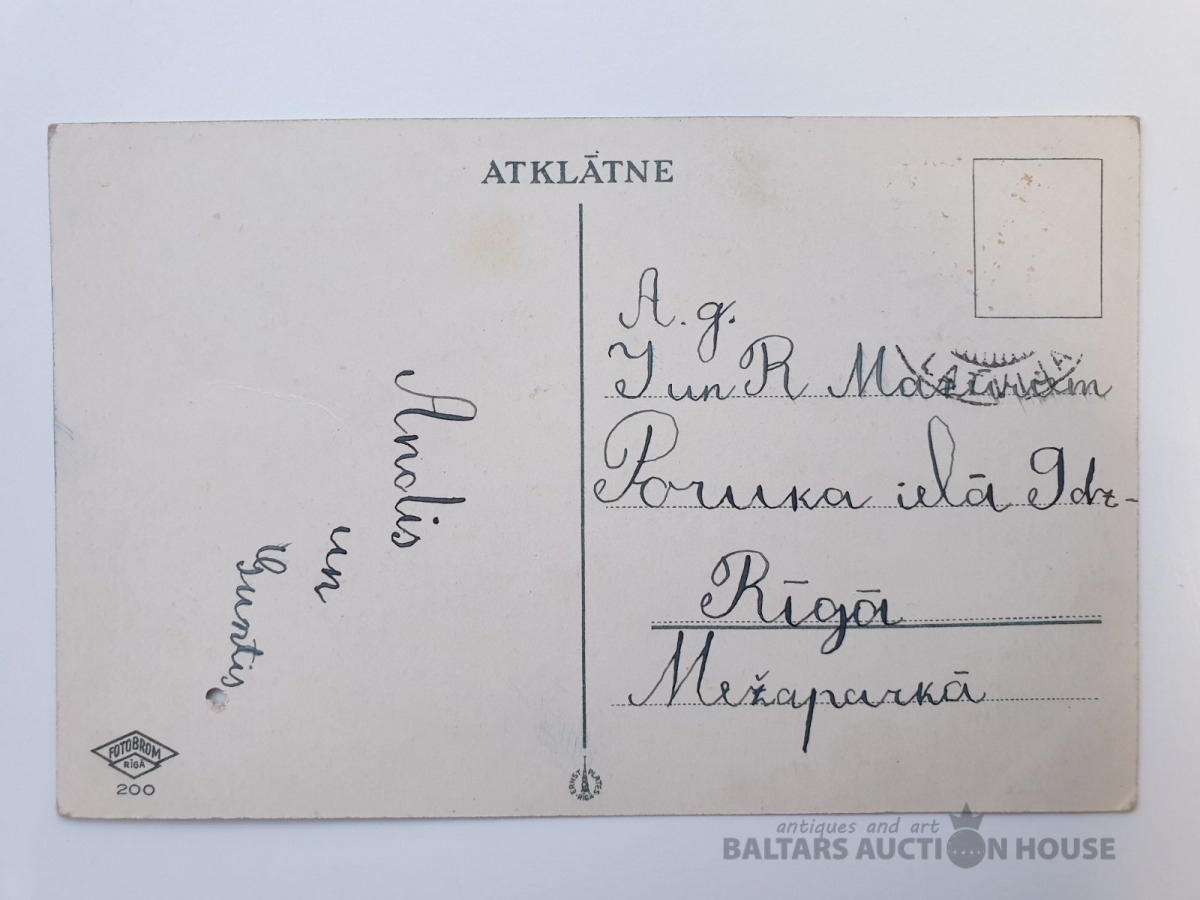 ATKLĀTNE
A. g.
J un R Mazūram
Poruka ielā 9 dz-
Rīgā
Mežaparkā
Andis
un
Guntis
FOTOBROM
RĪGĀ
200
ERNST PLATES
RĪGĀ
LATVIJA
antiques and art
BALTARS AUCTION HOUSE